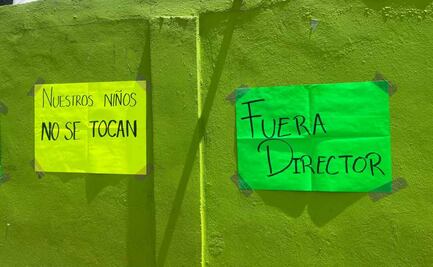 NUESTROS NIÑOS
NO SE TOCAN
FUERA
DIRECTOR